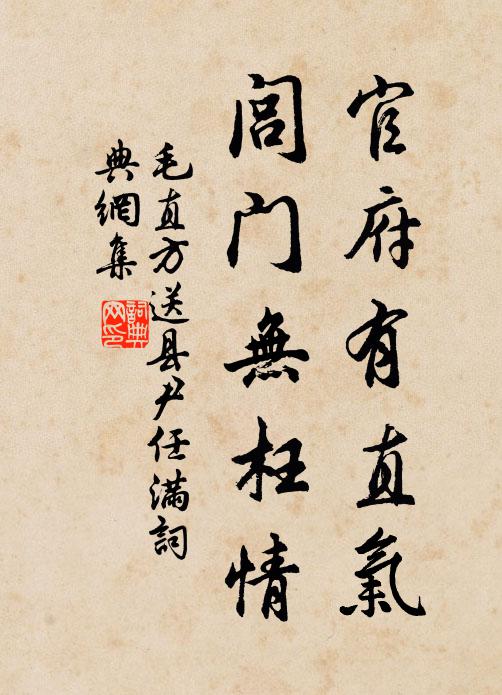 官府有直氣
閭門無枉情
毛直方送县尹任满詞
典網集
詞典
网印